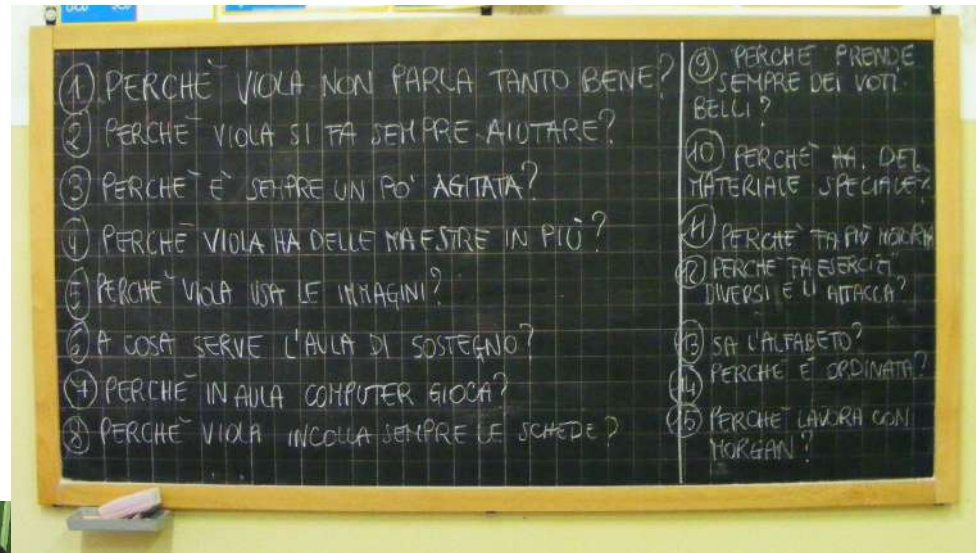 ① PERCHÈ VIOLA NON PARLA TANTO BENE?
② PERCHÈ VIOLA SI FA SEMPRE AIUTARE?
③ PERCHÈ È SEMPRE UN PO' AGITATA?
④ PERCHÈ VIOLA HA DELLE MAESTRE IN PIÙ?
⑤ PERCHÈ VIOLA USA LE IMMAGINI?
⑥ A COSA SERVE L'AULA DI SOSTEGNO?
⑦ PERCHÈ IN AULA COMPUTER GIOCA?
⑧ PERCHÈ VIOLA INCOLLA SEMPRE LE SCHEDE?
⑨ PERCHÈ PRENDE
SEMPRE DEI VOTI
BELLI?
⑩ PERCHÈ HA DEL
MATERIALE SPECIALE?
⑪ PERCHÈ FA PIÙ
⑫ PERCHÈ FA ESERCIZI
DIVERSI E LI ATTACCA?
⑬ SA L'ALFABETO?
⑭ PERCHÈ È ORDINATA?
⑮ PERCHÈ LAVORA CON
MORGAN?